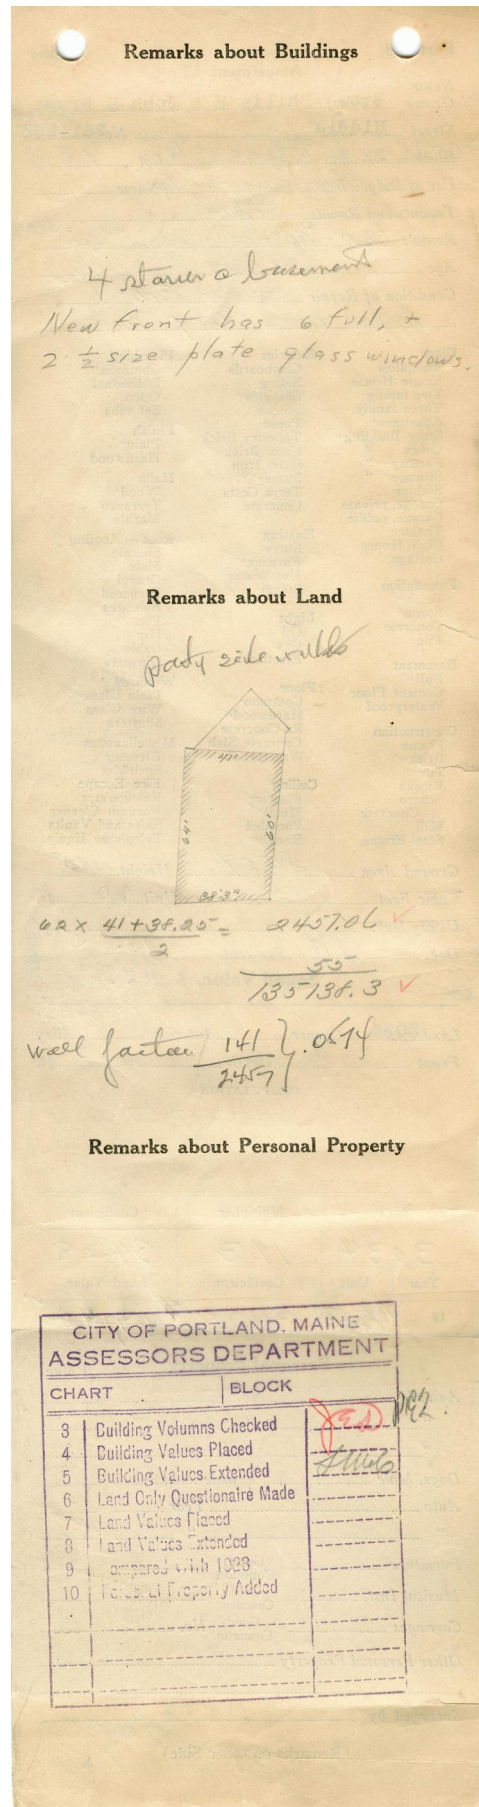 Remarks about Buildings
4 stories & basement
New front has 6 full, +
2 ½ size plate glass windows.
Remarks about Land
party side walls
41'
64'
60'
38'3"
62 x 41+38.25 = 2457.06 ✓
2
55
135138.3 ✓
wall factor 141 } .0574
2457
Remarks about Personal Property
CITY OF PORTLAND. MAINE
ASSESSORS DEPARTMENT
CHART BLOCK
3 Building Volumns Checked JED
4 Building Values Placed
5 Building Values Extended
6 Land Only Questionaire Made
7 Land Values Placed
8 Land Values Extended
9 Compared With 1923
10 Personal Property Added